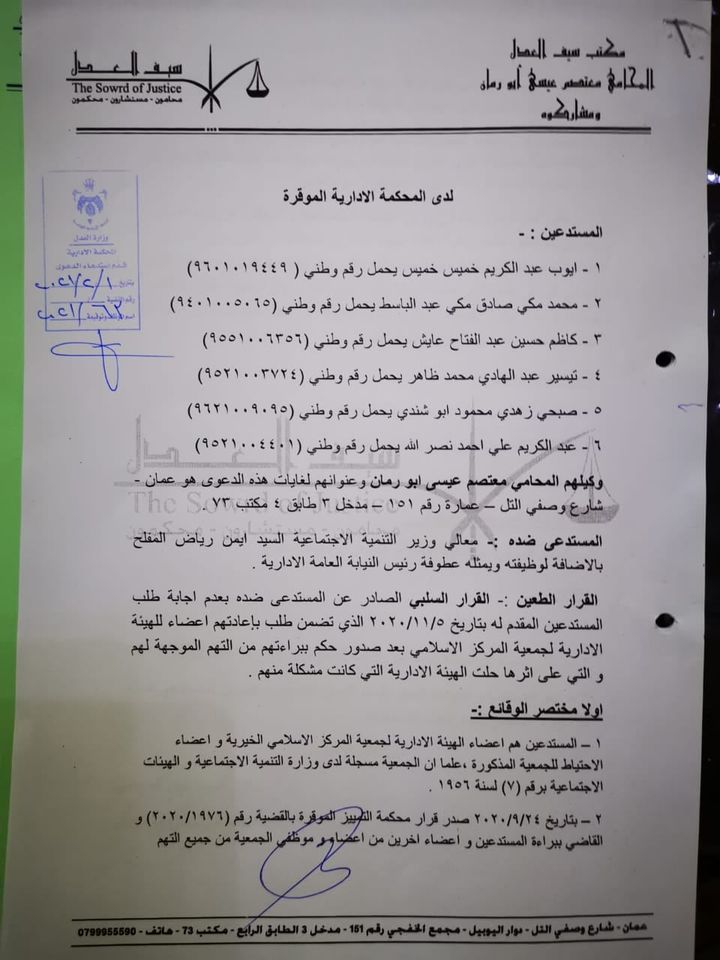 مكتب سيف العدل
المحامي معتصم عيسى أبو رمان
ومشاركوه
سيف العدل
The Sowrd of Justice
محامون - مستشارون - محكمون
لدى المحكمة الادارية الموقرة
وزارة العدل
المحكمة الادارية
قلم استدعاء الدعوى
بتاريخ
رقم القضية
المستدعين : -
١ - ايوب عبد الكريم خميس خميس يحمل رقم وطني ( ٩٦٠١٠١٩٤٤٩)
٢ - محمد مكي صادق مكي عبد الباسط يحمل رقم وطني (٩٤٠١٠٠٥٠٦٥)
٣ - كاظم حسين عبد الفتاح عايش يحمل رقم وطني (٩٥٥١٠٠٦٣٥٦)
٤ - تيسير عبد الهادي محمد ظاهر يحمل رقم وطني (٩٥٢١٠٠٣٧٢٤)
٥ - صبحي زهدي محمود ابو شندي يحمل رقم وطني (٩٦٢١٠٠٩٠٩٥)
٦ - عبد الكريم علي احمد نصر الله يحمل رقم وطني (٩٥٢١٠٠٤٤٠١)
سيف العدل
The Sowrd of Justice
محامون - مستشارون - محكمون
وكيلهم المحامي معتصم عيسى ابو رمان وعنوانهم لغايات هذه الدعوى هو عمان -
شارع وصفي التل – عمارة رقم ١٥١ – مدخل ٣ طابق ٤ مكتب ٧٣ .
المستدعى ضده :- معالي وزير التنمية الاجتماعية السيد ايمن رياض المفلح
بالاضافة لوظيفته ويمثله عطوفة رئيس النيابة العامة الادارية .
القرار الطعين :- القرار السلبي الصادر عن المستدعى ضده بعدم اجابة طلب
المستدعين المقدم له بتاريخ ٢٠٢٠/١١/٥ الذي تضمن طلب بإعادتهم اعضاء للهيئة
الادارية لجمعية المركز الاسلامي بعد صدور حكم ببراءتهم من التهم الموجهة لهم
و التي على اثرها حلت الهيئة الادارية التي كانت مشكلة منهم .
اولا مختصر الوقائع :-
١ – المستدعين هم اعضاء الهيئة الادارية لجمعية المركز الاسلامي الخيرية و اعضاء
الاحتياط للجمعية المذكورة ،علما ان الجمعية مسجلة لدى وزارة التنمية الاجتماعية و الهيئات
الاجتماعية برقم (٧) لسنة ١٩٥٦
٢ – بتاريخ ٢٠٢٠/٩/٢٤ صدر قرار محكمة التمييز الموقرة بالقضية رقم (٢٠٢٠/١٩٧٦) و
القاضي ببراءة المستدعين و اعضاء اخرين من اعضاء و موظفي الجمعية من جميع التهم
عمان - شارع وصفي التل - دوار اليوبيل - مجمع الخفجي رقم 151 - مدخل 3 الطابق الرابع - مكتب 73 - هاتف - 0799955590